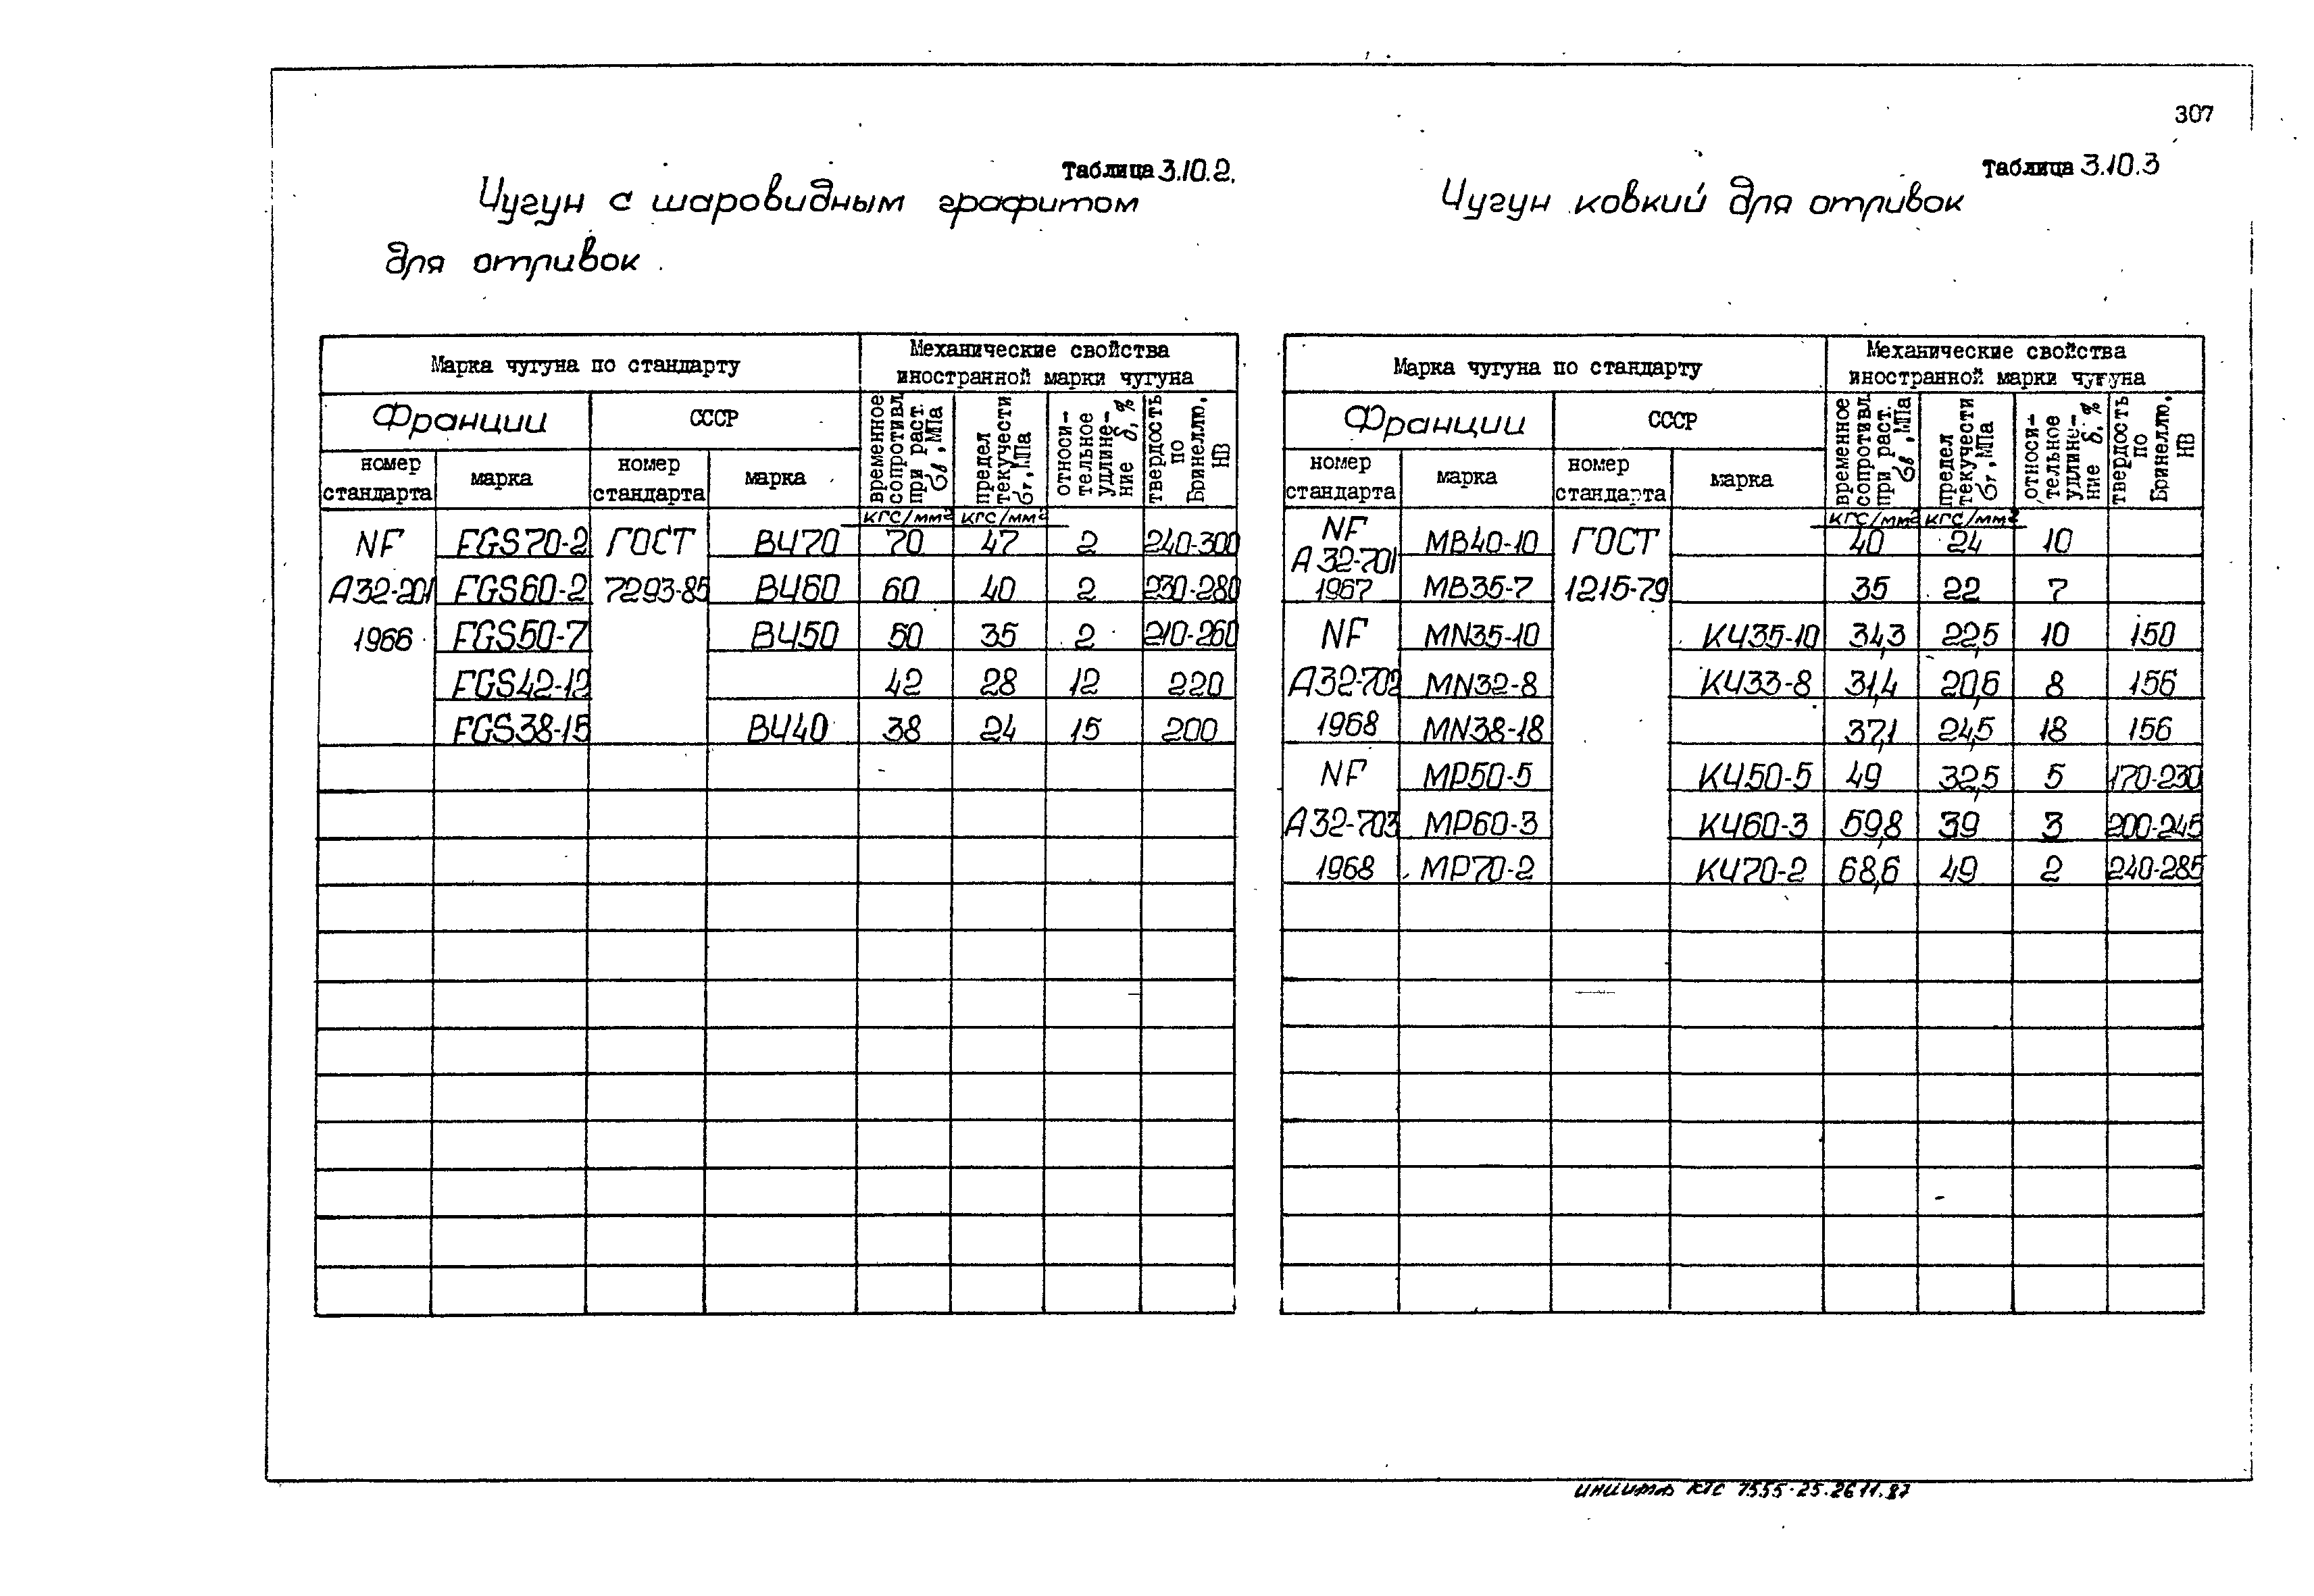 307
Таблица 3.10.2.
Чугун с шаровидным графитом
для отливок
Марка чугуна по стандарту
Механические свойства
иностранной марки чугуна
Франции
СССР
номер
стандарта
марка
номер
стандарта
марка
временное
сопротивл.
при раст.
σв, МПа
предел
текучести
σт, МПа
относи-
тельное
удлине-
ние δ, %
твердость
по
Бринеллю,
НВ
кгс/мм² кгс/мм²
NF FGS70-2 ГОСТ ВЧ70 70 47 2 240-300
А32-201 FGS60-2 7293-85 ВЧ60 60 40 2 230-280
1966 FGS50-7 ВЧ50 50 35 2 210-260
FGS42-12 42 28 12 220
FGS38-15 ВЧ40 38 24 15 200
Таблица 3.10.3
Чугун ковкий для отливок
Марка чугуна по стандарту
Механические свойства
иностранной марки чугуна
Франции
СССР
номер
стандарта
марка
номер
стандарта
марка
временное
сопротивл.
при раст.
σв, МПа
предел
текучести
σт, МПа
относи-
тельное
удлине-
ние δ, %
твердость
по
Бринеллю,
НВ
кгс/мм² кгс/мм²
NF
А32-701 МВ40-10 ГОСТ 40 24 10
1967 МВ35-7 1215-79 35 22 7
NF MN35-10 КЧ35-10 34,3 22,5 10 150
А32-702 MN32-8 КЧ33-8 31,4 20,6 8 156
1968 MN38-18 37,1 24,5 18 156
NF МР50-5 КЧ50-5 49 32,5 5 170-230
А32-703 МР60-3 КЧ60-3 59,8 39 3 200-245
1968 МР70-2 КЧ70-2 68,6 49 2 240-285
КТС 7555-25.2611.87